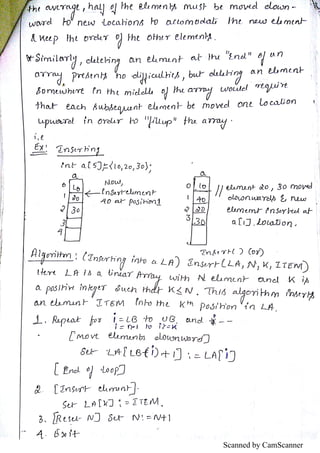 the average, half of the elements must be moved down-
ward to new locations to accomodate the new element
& keep the order of the other elements.
* Similarly, deleting an element at the "End" of an
array, presents no difficulties, but deleting an element
somewhere in the middle of the array would require
that each subsequent element be moved one location
upward in order to "fillup" the array.
i.e
Ex: Inserting
int a[5]={10,20,30};
a
0 10
1 20
2 30
3
4
Now,
Insert element
40 at position 1
a
0 10
1 40
2 20
3 30
// element 20, 30 moved
downwards & new
element inserted at
a[1] location.
Insert() (or)
Algorithm: (Inserting into a LA) Insert(LA, N, K, ITEM)
Here LA is a linear Array with N element and K is
a positive integer such that K≤N. This algorithm inserts
an element ITEM into the Kth position in LA.
1. Repeat for i = LB to UB and
i = n-1 to i>=K
[Move elements downward]
Set LA[LB+i)+1] := LA[i]
[End of loop]
2. [Insert element].
Set LA[K] := ITEM.
3. [Reset N] Set N:=N+1
4. Exit
Scanned by CamScanner